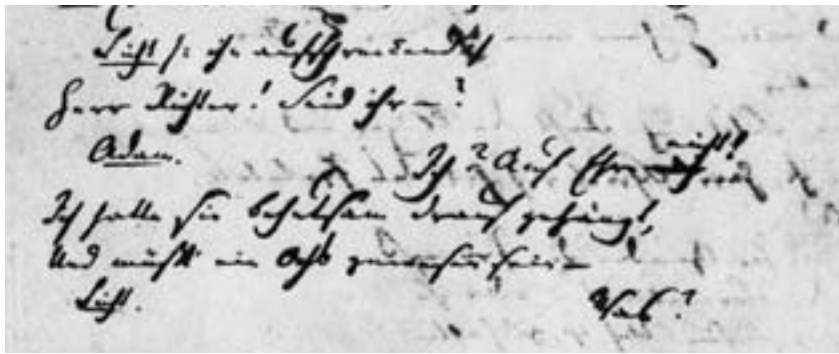 Licht /: ihn aufschreckend :/
Herr Richter! Seid ihr —?
Adam.
Ich? Auf Ehre nicht!
Ich hatte sie behutsam drauf gehängt,
Und müßt ein Ochs gewesen sein —
Licht.
Was?